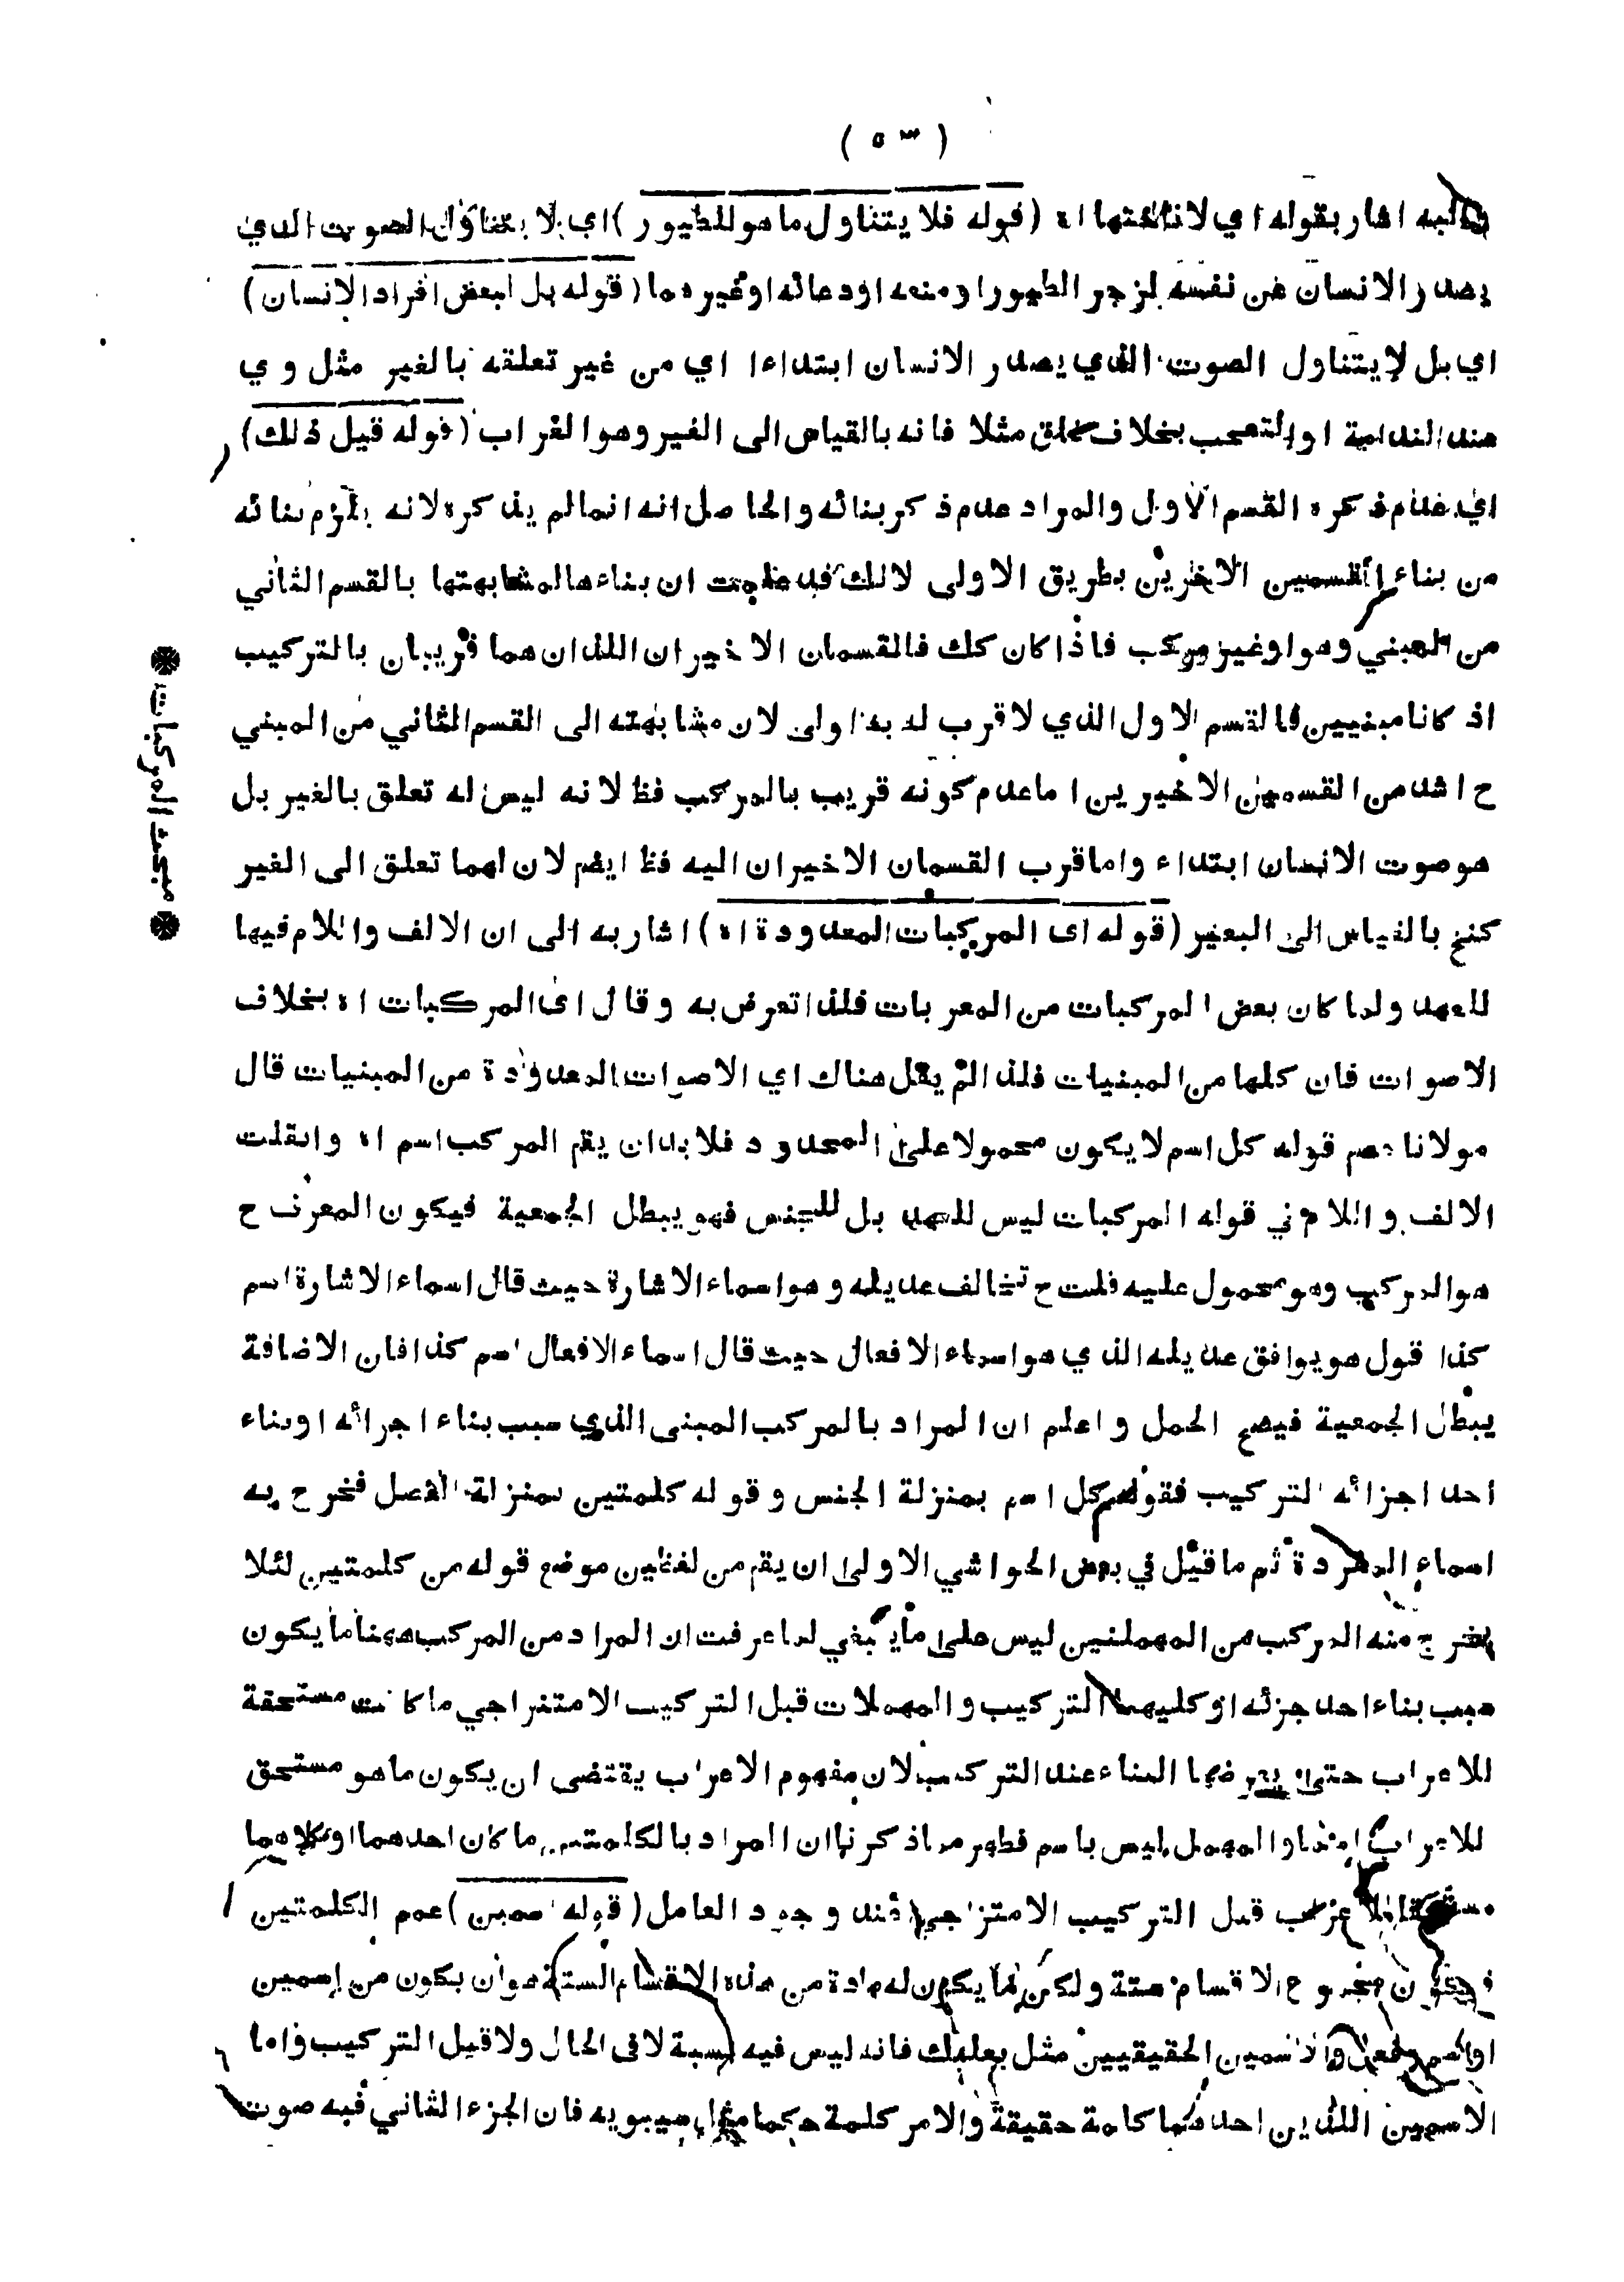 ( ٥٣ )
واليه اشار بقوله اي لاناختها اه (قوله فلا يتناول ما هو للطيور) اي بلا يتناول الصوت الذي
يصدر الانسان من نفسه لزجر الطيور او منعه او دعائه او غيرهما (قوله بل لبعض افراد الانسان)
اي بل لا يتناول الصوت الذي يصدر الانسان ابتداءا اي من غير تعلقه بالغير مثل وي
عند الندامة او التعجب بخلاف مثلا فانه بالقياس الى الغير وهو الغراب (قوله قيل ذلك)
اي عدم ذكره القسم الاول والمراد عدم ذكر بنائه والحاصل انه انما لم يذكره لانه يلزم بنائه
من بناء القسمين الاخرين بطريق الاولى لانك قد علمت ان بناءها لمشابهتها بالقسم الثاني
من المبني وهو او غير مركب فاذا كان كك فالقسمان الاخيران اللذان هما قريبان بالتركيب
اذ كانا مبنيين فالقسم الاول الذي لا قرب له به اولى لان مشابهته الى القسم الثاني من المبني
ح اشد من القسمين الاخيرين اما عدم كونه قريب بالمركب فظ لانه ليس له تعلق بالغير بل
هو صوت الانسان ابتداء واما قرب القسمان الاخيران اليه فظ ايضم لان لهما تعلق الى الغير
كنخ بالقياس الى البعير (قوله اى المركبات المعدودة اه) اشار به الى ان الالف واللام فيها
للعهد ولما كان بعض المركبات من المعربات فلذا تعرض به وقال اى المركبات اه بخلاف
الاصوات فان كلها من المبنيات فلذا لم يقل هناك اي الاصوات المعدودة من المبنيات قال
مولانا عصم قوله كل اسم لا يكون محمولا على المحدود فلا بد ان يقم المركب اسم اه وانقلت
الالف واللام في قوله المركبات ليس للعهد بل للجنس فهو يبطل الجمعية فيكون المعرف ح
هو المركب وهو محمول عليه قلت ح تخالف عديله وهو اسماء الاشارة حيث قال اسماء الاشارة اسم
كذا قول هو يوافق عديله الذي هو اسماء الافعال حيث قال اسماء الافعال اسم كذا فان الاضافة
يبطل الجمعية فيصح الحمل واعلم ان المراد بالمركب المبنى الذي سبب بناء اجزائه او بناء
احد اجزائه التركيب فقوله كل اسم بمنزلة الجنس وقوله كلمتين بمنزلة الفصل فخرج به
اسماء المفردة ثم ما قيل في بعض الحواشي الاولى ان يقم من لفظين موضع قوله من كلمتين لئلا
يخرج منه المركب من المهملتين ليس على ما ينبغي لما عرفت ان المراد من المركب ههنا ما يكون
سبب بناء احد جزئه او كليهما التركيب والمهملات قبل التركيب الامتزاجي ما كانت مستحقة
للاعراب حتى يعرضها البناء عند التركيب لان مفهوم الاعراب يقتضى ان يكون ما هو مستحق
للاعراب والمهمل ليس باسم فظهر مما ذكرنا ان المراد بالكلمتين ما كان احدهما او كلاهما
مستحقا للاعراب قبل التركيب الامتزاجي عند وجود العامل (قوله اسمين) عمم الكلمتين
فيكون مجموع الاقسام ستة ولكن لما يكن له مادة من هذه الاقسام الستة هو ان يكون من اسمين
او اسم وفعل والاسمين الحقيقيين مثل بعلبك فانه ليس فيه نسبة لا فى الحال ولا قبل التركيب واما
الاسمين اللذين احدهما كلمة حقيقة والامر كلمة حكما مثل سيبويه فان الجزء الثاني فيه صوت
مبحث المركبات